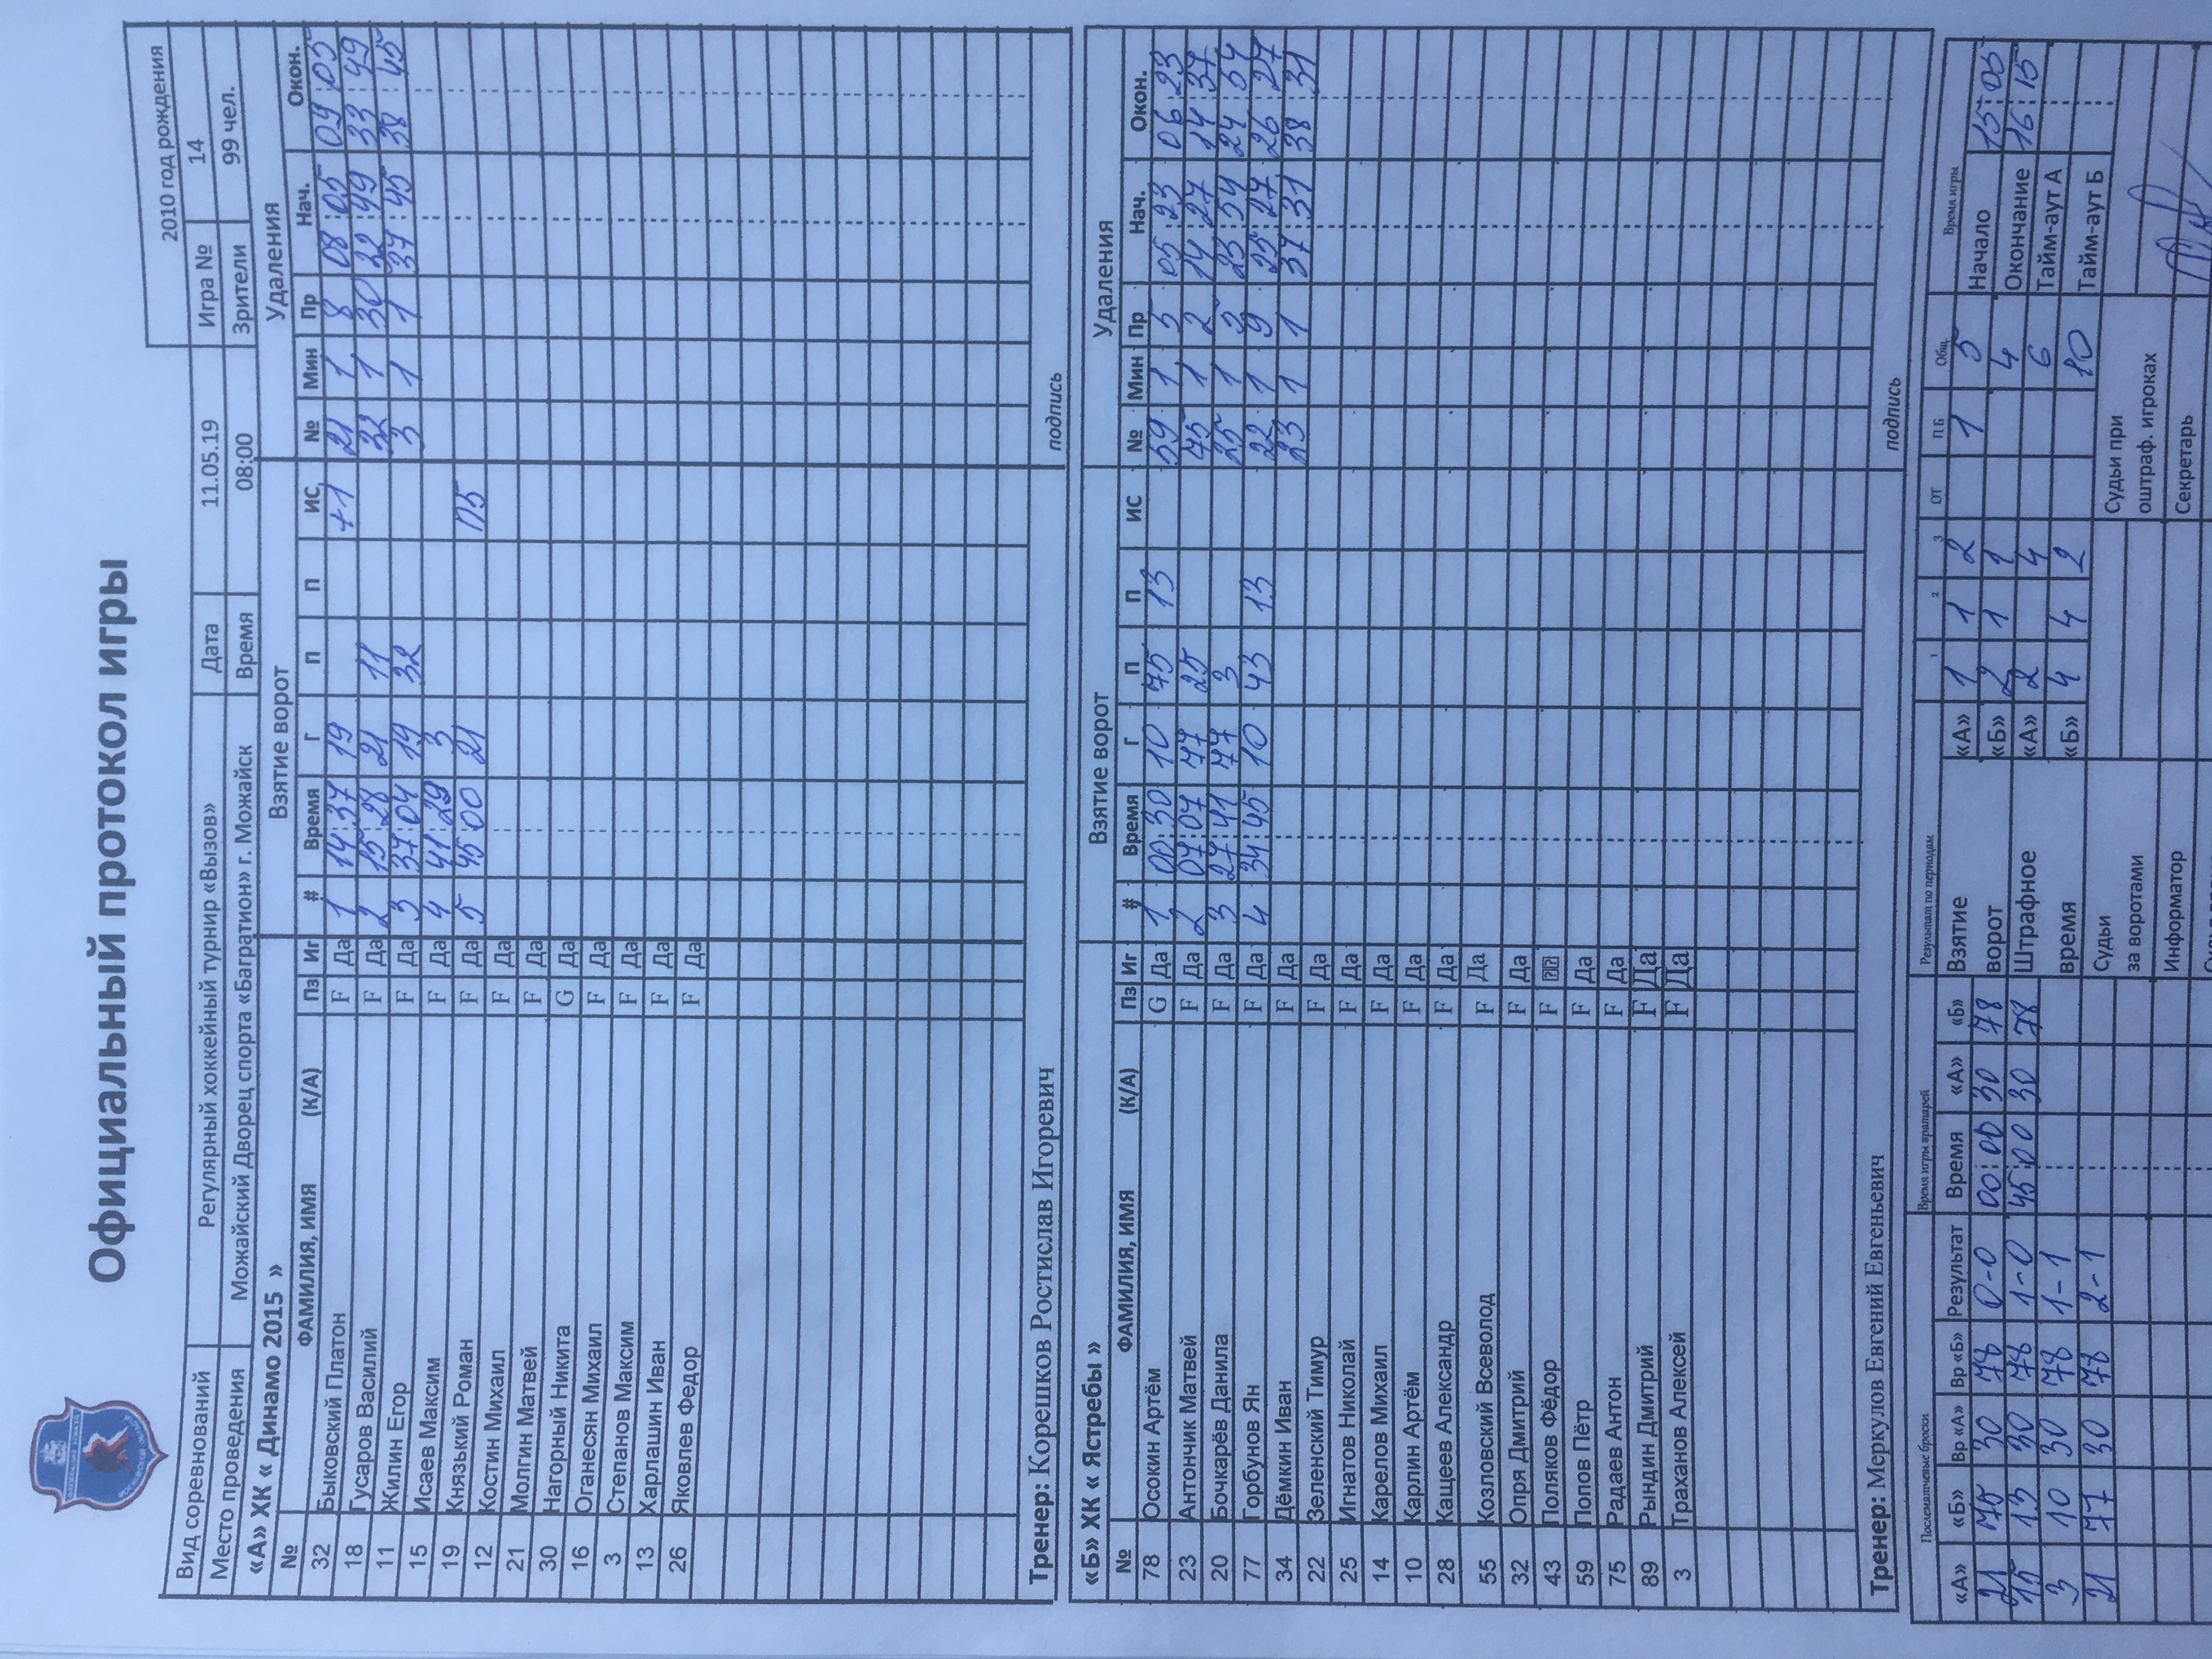 Официальный протокол игры
2010 год рождения
Вид соревнований Регулярный хоккейный турнир «Вызов» Дата 11.05.19 Игра № 14
Место проведения Можайский Дворец спорта «Багратион» г. Можайск Время 08:00 Зрители 99 чел.
«А» ХК « Динамо 2015 » Взятие ворот Удаления
№ ФАМИЛИЯ, ИМЯ (К/А) Пз Иг # Время Г П П ИС № Мин Пр Нач. Окон.
32 Быковский Платон F Да 1 14:37 19 +1 21 1 8 08:05 09:05
18 Гусаров Василий F Да 2 15:28 21 11 32 1 30 32:49 33:49
11 Жилин Егор F Да 3 37:04 19 32 3 1 1 37:45 38:45
15 Исаев Максим F Да 4 41:29 3
19 Князький Роман F Да 5 45:00 21 ПБ
12 Костин Михаил F Да
21 Молгин Матвей F Да
30 Нагорный Никита G Да
16 Оганесян Михаил F Да
3 Степанов Максим F Да
13 Харлашин Иван F Да
26 Яковлев Федор F Да
Тренер: Корешков Ростислав Игоревич подпись
«Б» ХК « Ястребы » Взятие ворот Удаления
№ ФАМИЛИЯ, ИМЯ (К/А) Пз Иг # Время Г П П ИС № Мин Пр Нач. Окон.
78 Осокин Артём G Да 1 00:30 10 75 13 59 1 5 05:23 06 23
23 Антончик Матвей F Да 2 07:07 77 25 75 1 2 14:27 14 37
20 Бочкарёв Данила F Да 3 27:41 77 3 25 1 3 23:54 24 54
77 Горбунов Ян F Да 4 34:45 10 43 13 22 1 9 25:27 26:27
34 Дёмкин Иван F Да 23 1 1 37:31 38 31
22 Зеленский Тимур F Да
25 Игнатов Николай F Да
14 Карелов Михаил F Да
10 Карлин Артём F Да
28 Кащеев Александр F Да
55 Козловский Всеволод F Да
32 Опря Дмитрий F Да
43 Поляков Фёдор F
59 Попов Пётр F Да
75 Радаев Антон F Да
89 Рындин Дмитрий F Да
3 Траханов Алексей F Да
Тренер: Меркулов Евгений Евгеньевич подпись
Послематчевые броски Время игры вратарей Результат по периодам Время игры
«А» «Б» Вр «А» Вр «Б» Результат Время «А» «Б» Взятие «А» 1 1 2 1 5 Начало 15:05
1 2 3 ОТ П.Б Общ.
21 75 30 78 0-0 00:00 30 78 ворот «Б» 2 1 1 4 Окончание 16:15
15 13 30 78 1-0 45:00 30 78 Штрафное «А» 2 4 6 Тайм-аут А
3 10 30 78 1-1 время «Б» 4 4 2 10 Тайм-аут Б
21 77 30 78 2-1 Судьи
за воротами Судьи при
оштраф. игроках
Информатор Секретарь